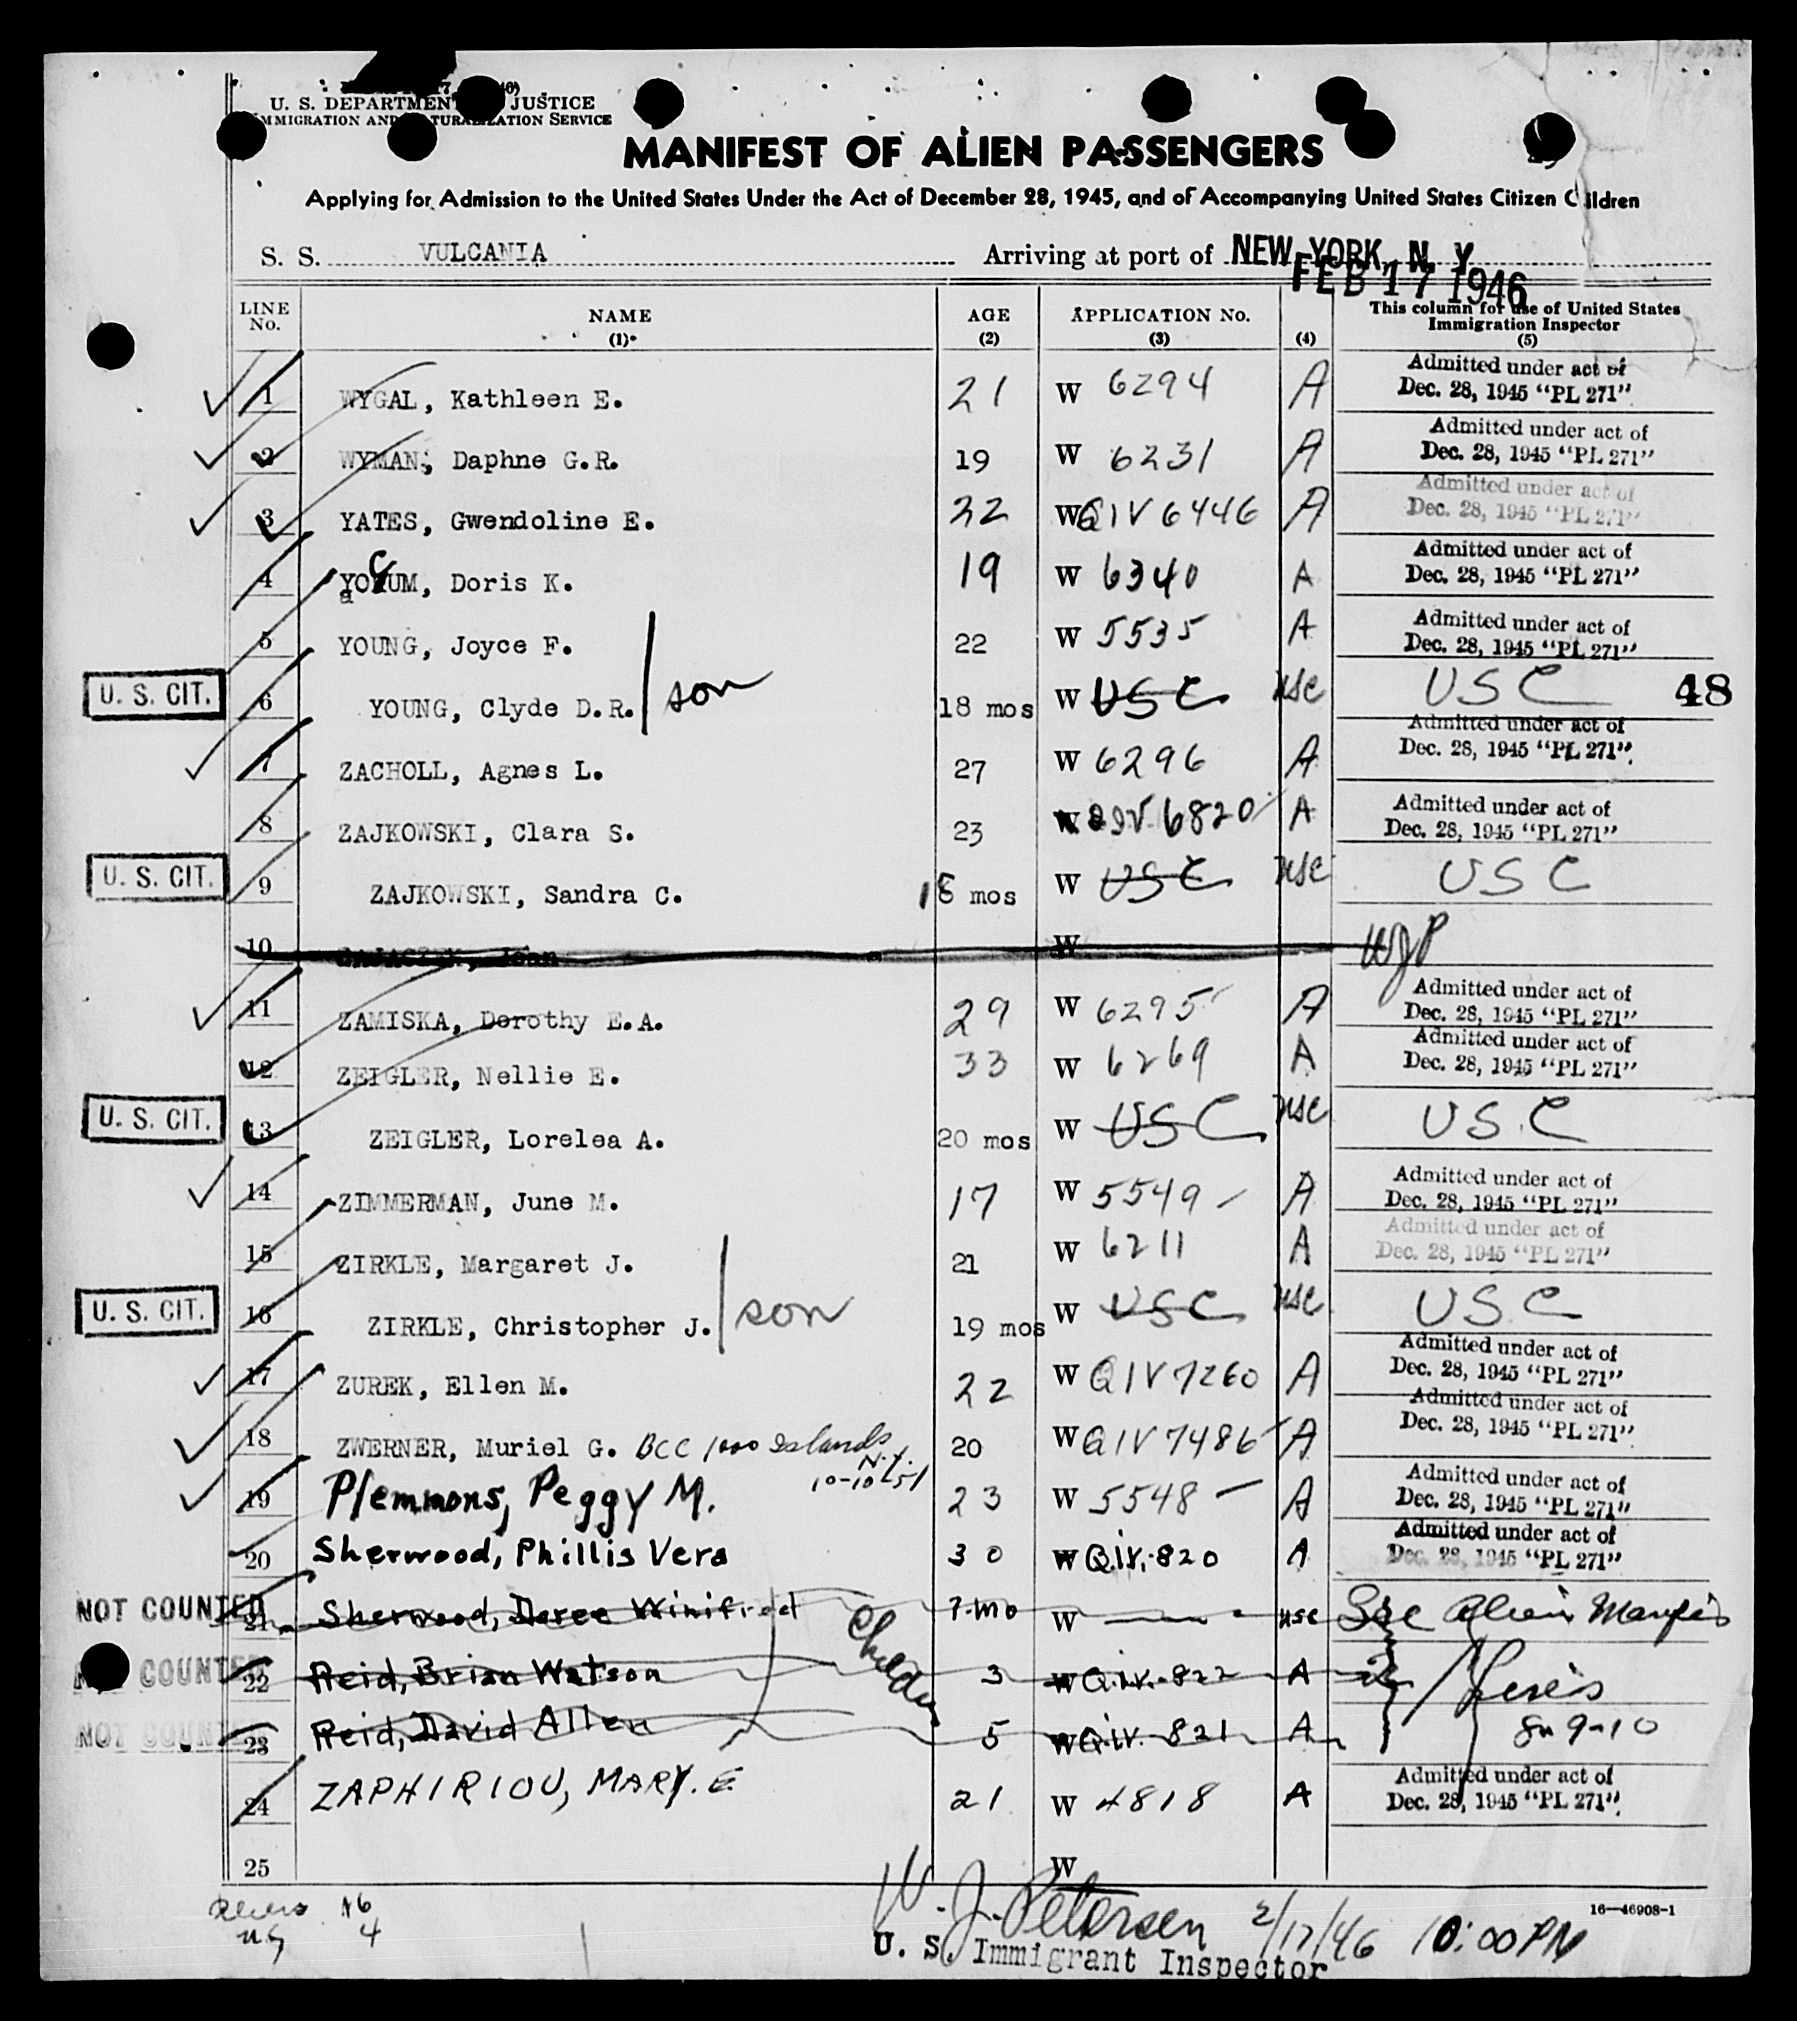 U. S. DEPARTMENT JUSTICE
IMMIGRATION AND NATURALIZATION SERVICE
MANIFEST OF ALIEN PASSENGERS
Applying for Admission to the United States Under the Act of December 28, 1945, and of Accompanying United States Citizen Children
S. S. VULCANIA Arriving at port of NEW YORK, N. Y.
FEB 17 1946
LINE No. NAME (1) AGE (2) APPLICATION No. (3) (4) This column for use of United States Immigration Inspector (5)
1 WYGAL, Kathleen E. 21 W 6294 A Admitted under act of Dec. 28, 1945 "PL 271"
2 WYMAN, Daphne G.R. 19 W 6231 A Admitted under act of Dec. 28, 1945 "PL 271"
3 YATES, Gwendoline E. 22 W QIV 6446 A Admitted under act of Dec. 28, 1945 "PL 271"
4 YOCUM, Doris K. 19 W 6340 A Admitted under act of Dec. 28, 1945 "PL 271"
5 YOUNG, Joyce F. 22 W 5535 A Admitted under act of Dec. 28, 1945 "PL 271"
U. S. CIT. 6 YOUNG, Clyde D.R. son 18 mos W USC USC USC 48
7 ZACHOLL, Agnes L. 27 W 6296 A Admitted under act of Dec. 28, 1945 "PL 271"
8 ZAJKOWSKI, Clara S. 23 W QIV 6820 A Admitted under act of Dec. 28, 1945 "PL 271"
U. S. CIT. 9 ZAJKOWSKI, Sandra C. 18 mos W USC USC USC
10 Jean W WJP
11 ZAMISKA, Dorothy E.A. 29 W 6295 A Admitted under act of Dec. 28, 1945 "PL 271"
12 ZEIGLER, Nellie E. 33 W 6269 A Admitted under act of Dec. 28, 1945 "PL 271"
U. S. CIT. 13 ZEIGLER, Lorelea A. 20 mos W USC USC USC
14 ZIMMERMAN, June M. 17 W 5549 A Admitted under act of Dec. 28, 1945 "PL 271"
15 ZIRKLE, Margaret J. 21 W 6211 A Admitted under act of Dec. 28, 1945 "PL 271"
U. S. CIT. 16 ZIRKLE, Christopher J. son 19 mos W USC USC USC
17 ZUREK, Ellen M. 22 W QIV 7260 A Admitted under act of Dec. 28, 1945 "PL 271"
18 ZWERNER, Muriel G. BCC 1000 Islands N.Y. 10-10-51 20 W QIV 7486 A Admitted under act of Dec. 28, 1945 "PL 271"
19 Plemmons, Peggy M. 23 W 5548 A Admitted under act of Dec. 28, 1945 "PL 271"
20 Sherwood, Phillis Vera 30 W Q.iv. 820 A Admitted under act of Dec. 28, 1945 "PL 271"
NOT COUNTED 21 Sherwood, Winifred 7 mo W USC See Alien Manifes
COUNTED 22 Reid, Brian Watson Children 3 W Q.iv. 822 A
NOT COUNTED 23 Reid, David Allen 5 W Q.iv. 821 A 8-9-10
24 ZAPHIRIOU, MARY. E 21 W 4818 A Admitted under act of Dec. 28, 1945 "PL 271"
25 W
16—46908-1
W. J. Petersen 2/17/46 10:00 PM
U. S. Immigrant Inspector